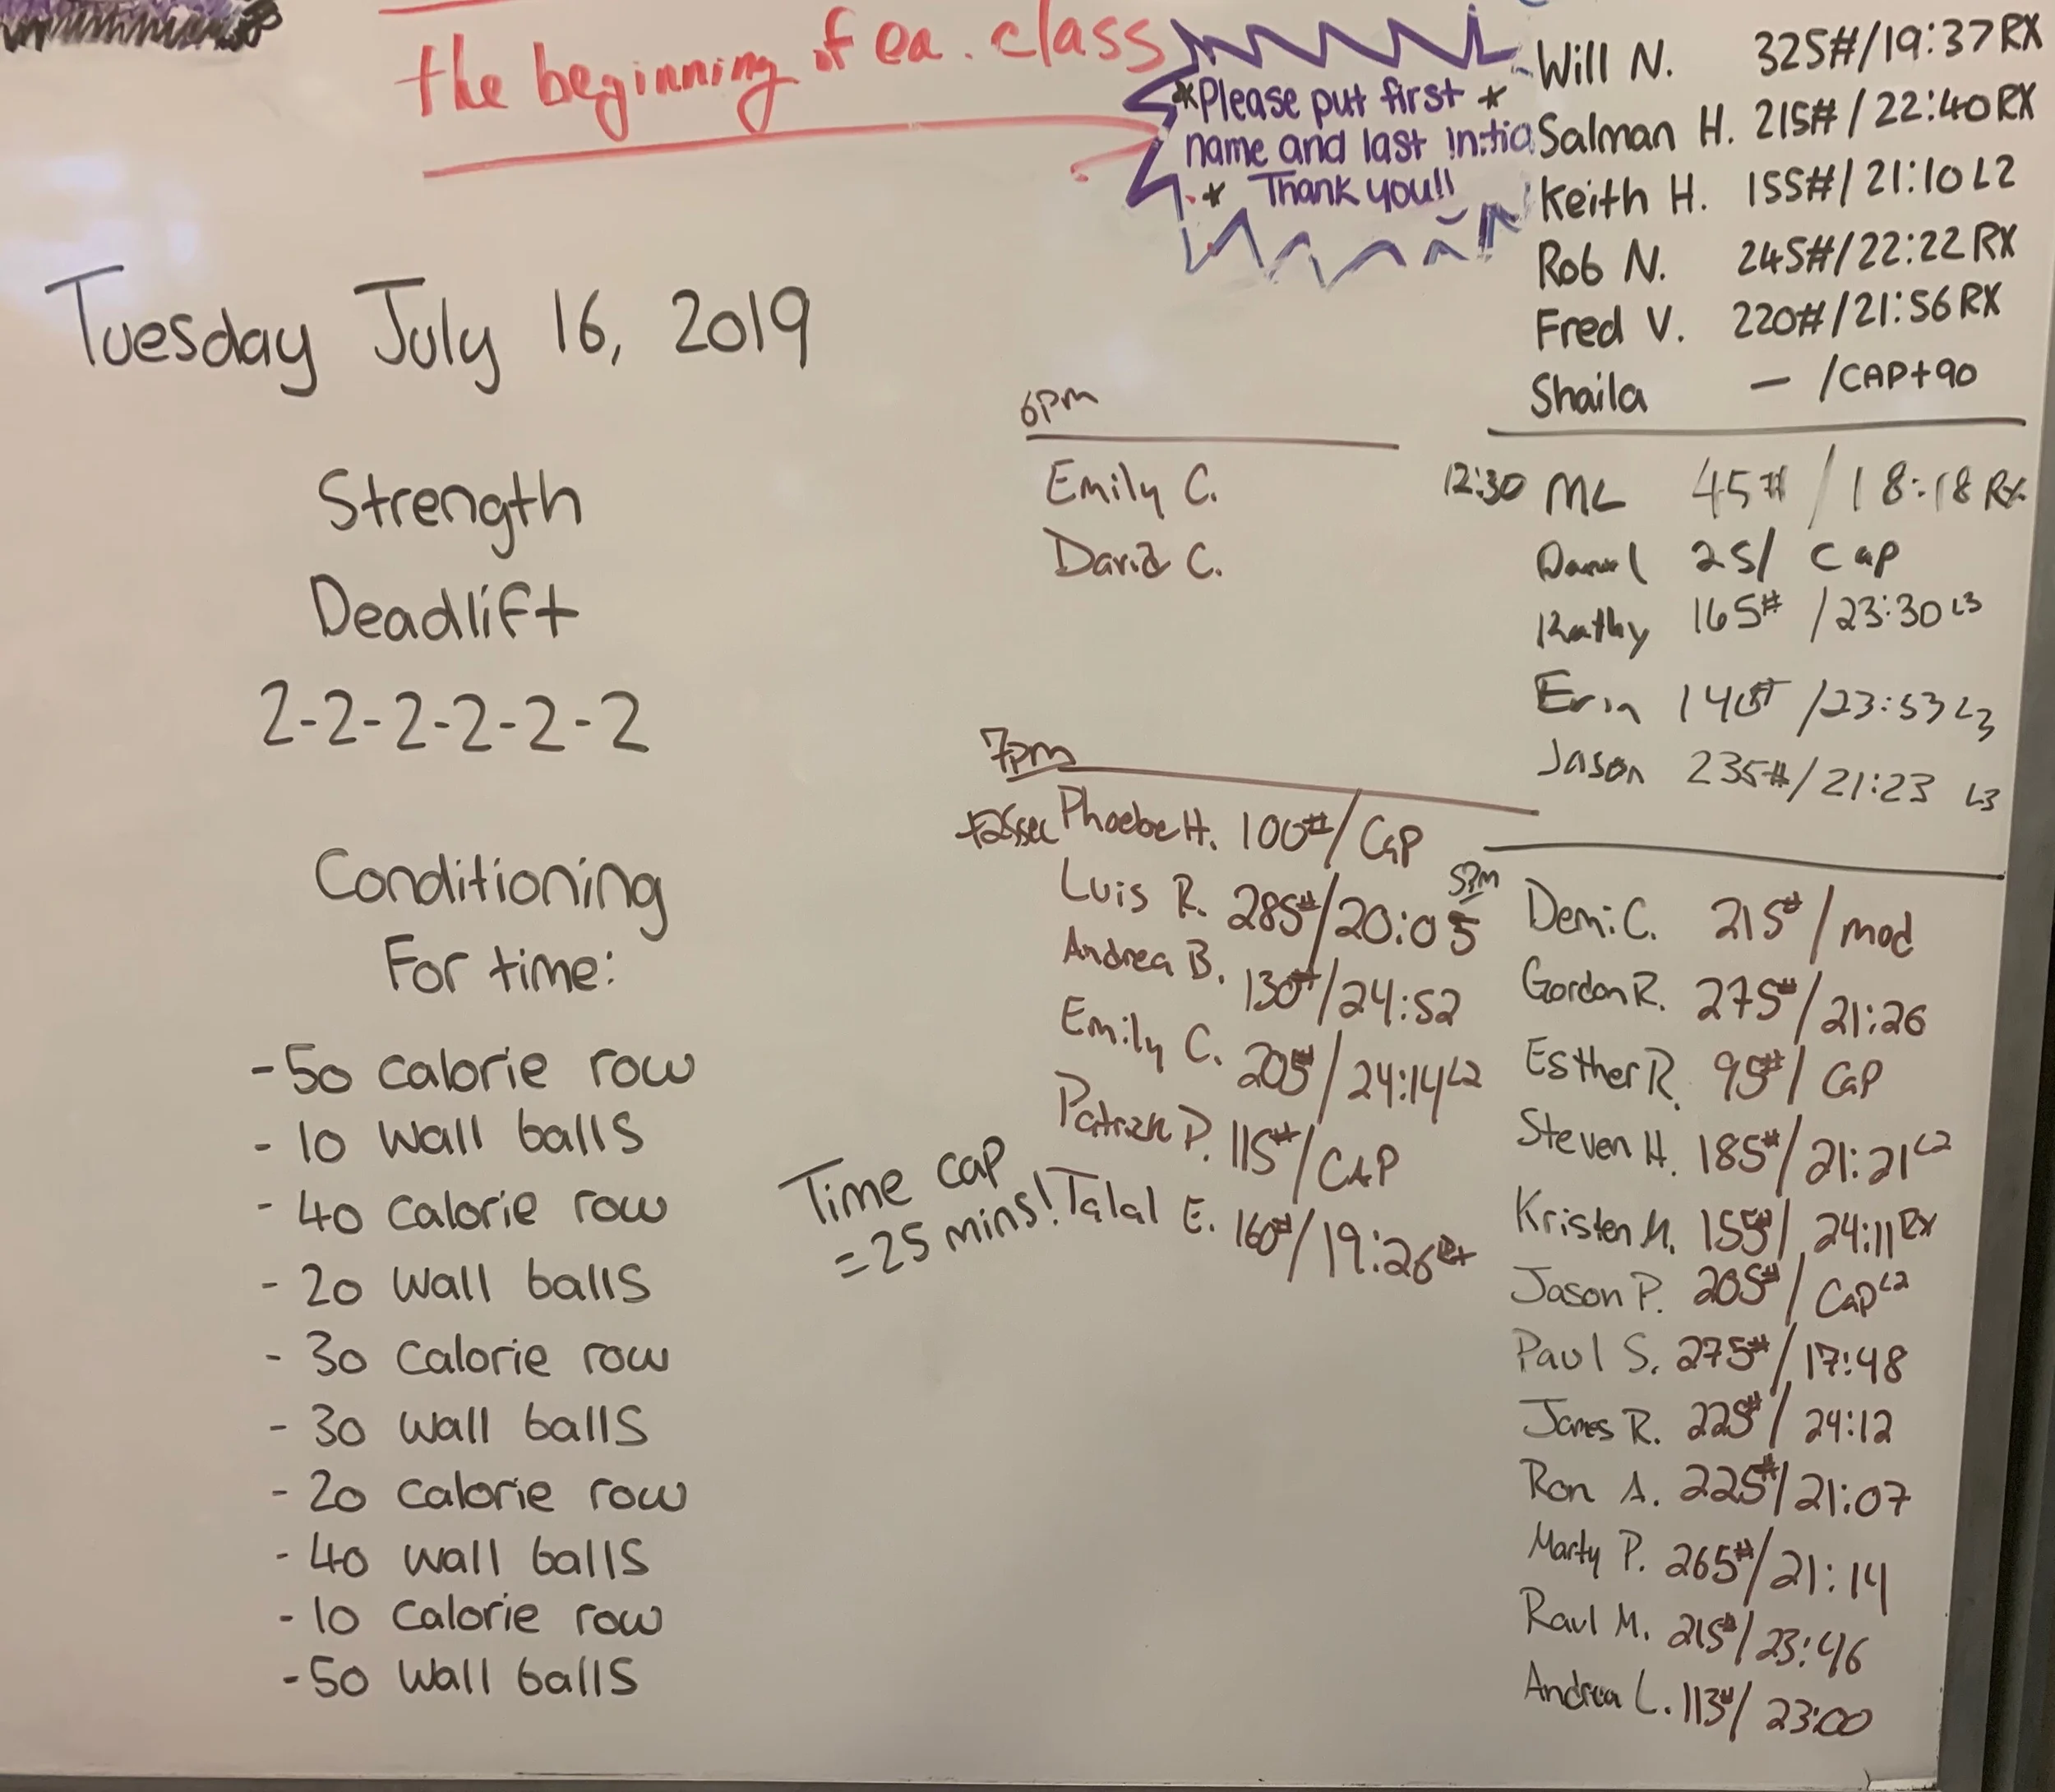 the beginning of ea. class
*Please put first *
name and last initia
* Thank you!!
Tuesday July 16, 2019
Strength
Deadlift
2-2-2-2-2-2
Conditioning
For time:
-50 calorie row
-10 wall balls
-40 calorie row
-20 wall balls
-30 calorie row
-30 wall balls
-20 calorie row
-40 wall balls
-10 calorie row
-50 wall balls
Time cap
=25 mins!
6pm
Emily C.
David C.
7pm
+25sec Phoebe H. 100#/Cap
Luis R. 285#/20:05
Andrea B. 130#/24:52
Emily C. 205#/24:14 L2
Patrick P. 115#/CAP
Talal E. 160#/19:26 Rx
Will N. 325#/19:37 RX
Salman H. 215#/22:40 RX
Keith H. 155#/21:10 L2
Rob N. 245#/22:22 RX
Fred V. 220#/21:56 RX
Shaila — /CAP+90
12:30 ML 45#/18:18 Rx
25/ Cap
Kathy 165#/23:30 L3
Erin 140#/23:53 L3
Jason 235#/21:23 L3
5pm Demi C. 215#/mod
Gordon R. 275#/21:26
Esther R. 95#/Cap
Steven H. 185#/21:21 L2
Kristen M. 155#/24:11 Rx
Jason P. 205#/Cap L2
Paul S. 275#/17:48
James R. 225#/24:12
Ron A. 225#/21:07
Marty P. 265#/21:14
Raul M. 215#/23:46
Andrea L. 113#/23:00